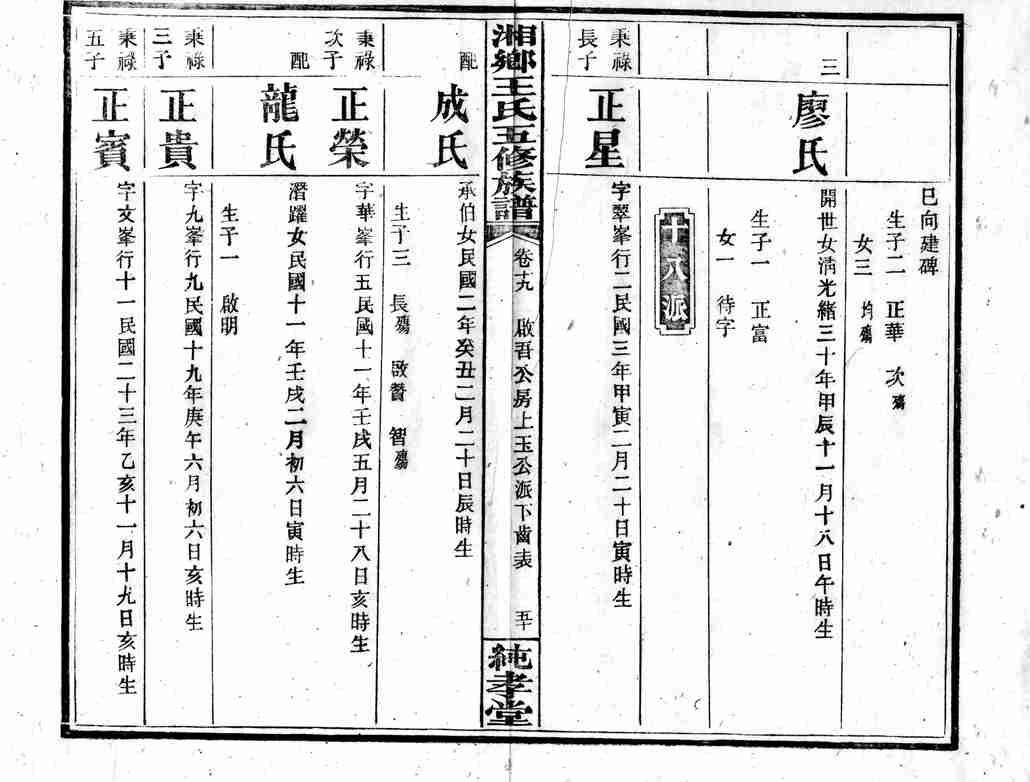 巳向建碑
生子二 正華 次殤
女三 均殤
三
廖氏
開世女淸光緖三十年甲辰十一月十八日午時生
生子一 正富
女一 待字
十八派
秉祿
長子
正星
字翠峯行二民國三年甲寅二月二十日寅時生
湘鄉王氏五修族譜
卷十九 啟吾公房上玉公派下齒表 五十
純孝堂
配
成氏
承伯女民國二年癸丑二月二十日辰時生
生子三 長殤 啟贊 智殤
秉祿
次子
正榮
字華峯行五民國十一年壬戌五月二十八日亥時生
配
龍氏
潛躍女民國十一年壬戌二月初六日寅時生
生子一 啟明
秉祿
三子
正貴
字九峯行九民國十九年庚午六月初六日亥時生
秉祿
五子
正賓
字文峯行十一民國二十三年乙亥十一月十九日亥時生